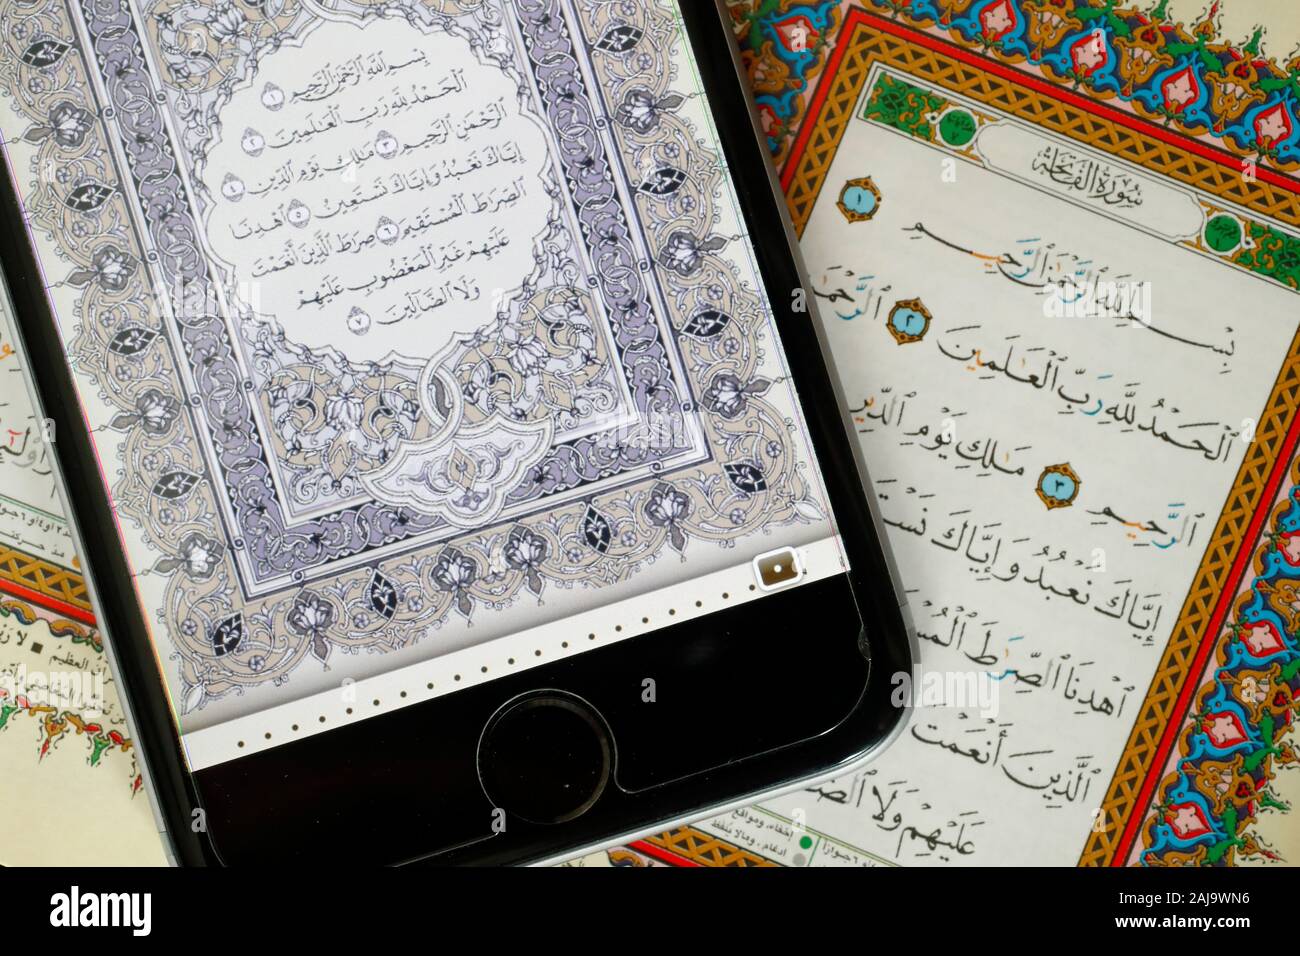 بِسْمِ ٱللَّهِ ٱلرَّحْمَٰنِ ٱلرَّحِيمِ ١
ٱلْحَمْدُ لِلَّهِ رَبِّ ٱلْعَٰلَمِينَ ٢
ٱلرَّحْمَٰنِ ٱلرَّحِيمِ ٣ مَٰلِكِ يَوْمِ ٱلدِّينِ ٤
إِيَّاكَ نَعْبُدُ وَإِيَّاكَ نَسْتَعِينُ ٥ ٱهْدِنَا
ٱلصِّرَٰطَ ٱلْمُسْتَقِيمَ ٦ صِرَٰطَ ٱلَّذِينَ أَنْعَمْتَ
عَلَيْهِمْ غَيْرِ ٱلْمَغْضُوبِ عَلَيْهِمْ
وَلَا ٱلضَّآلِّينَ ٧
سُورَةُ الْفَاتِحَةِ
بِسْمِ ٱللَّهِ ٱلرَّحْمَٰنِ ٱلرَّحِيمِ ١
ٱلْحَمْدُ لِلَّهِ رَبِّ ٱلْعَٰلَمِينَ ٢
ٱلرَّحِيمِ ٣ مَٰلِكِ يَوْمِ ٱلدِّينِ
إِيَّاكَ نَعْبُدُ وَإِيَّاكَ
ٱهْدِنَا ٱلصِّرَٰطَ
ٱلَّذِينَ أَنْعَمْتَ
عَلَيْهِمْ وَلَا
إخفاء، ومواقع
إدغام، ومالا يُلفَظ
alamy
Image ID: 2AJ9WN6
www.alamy.com